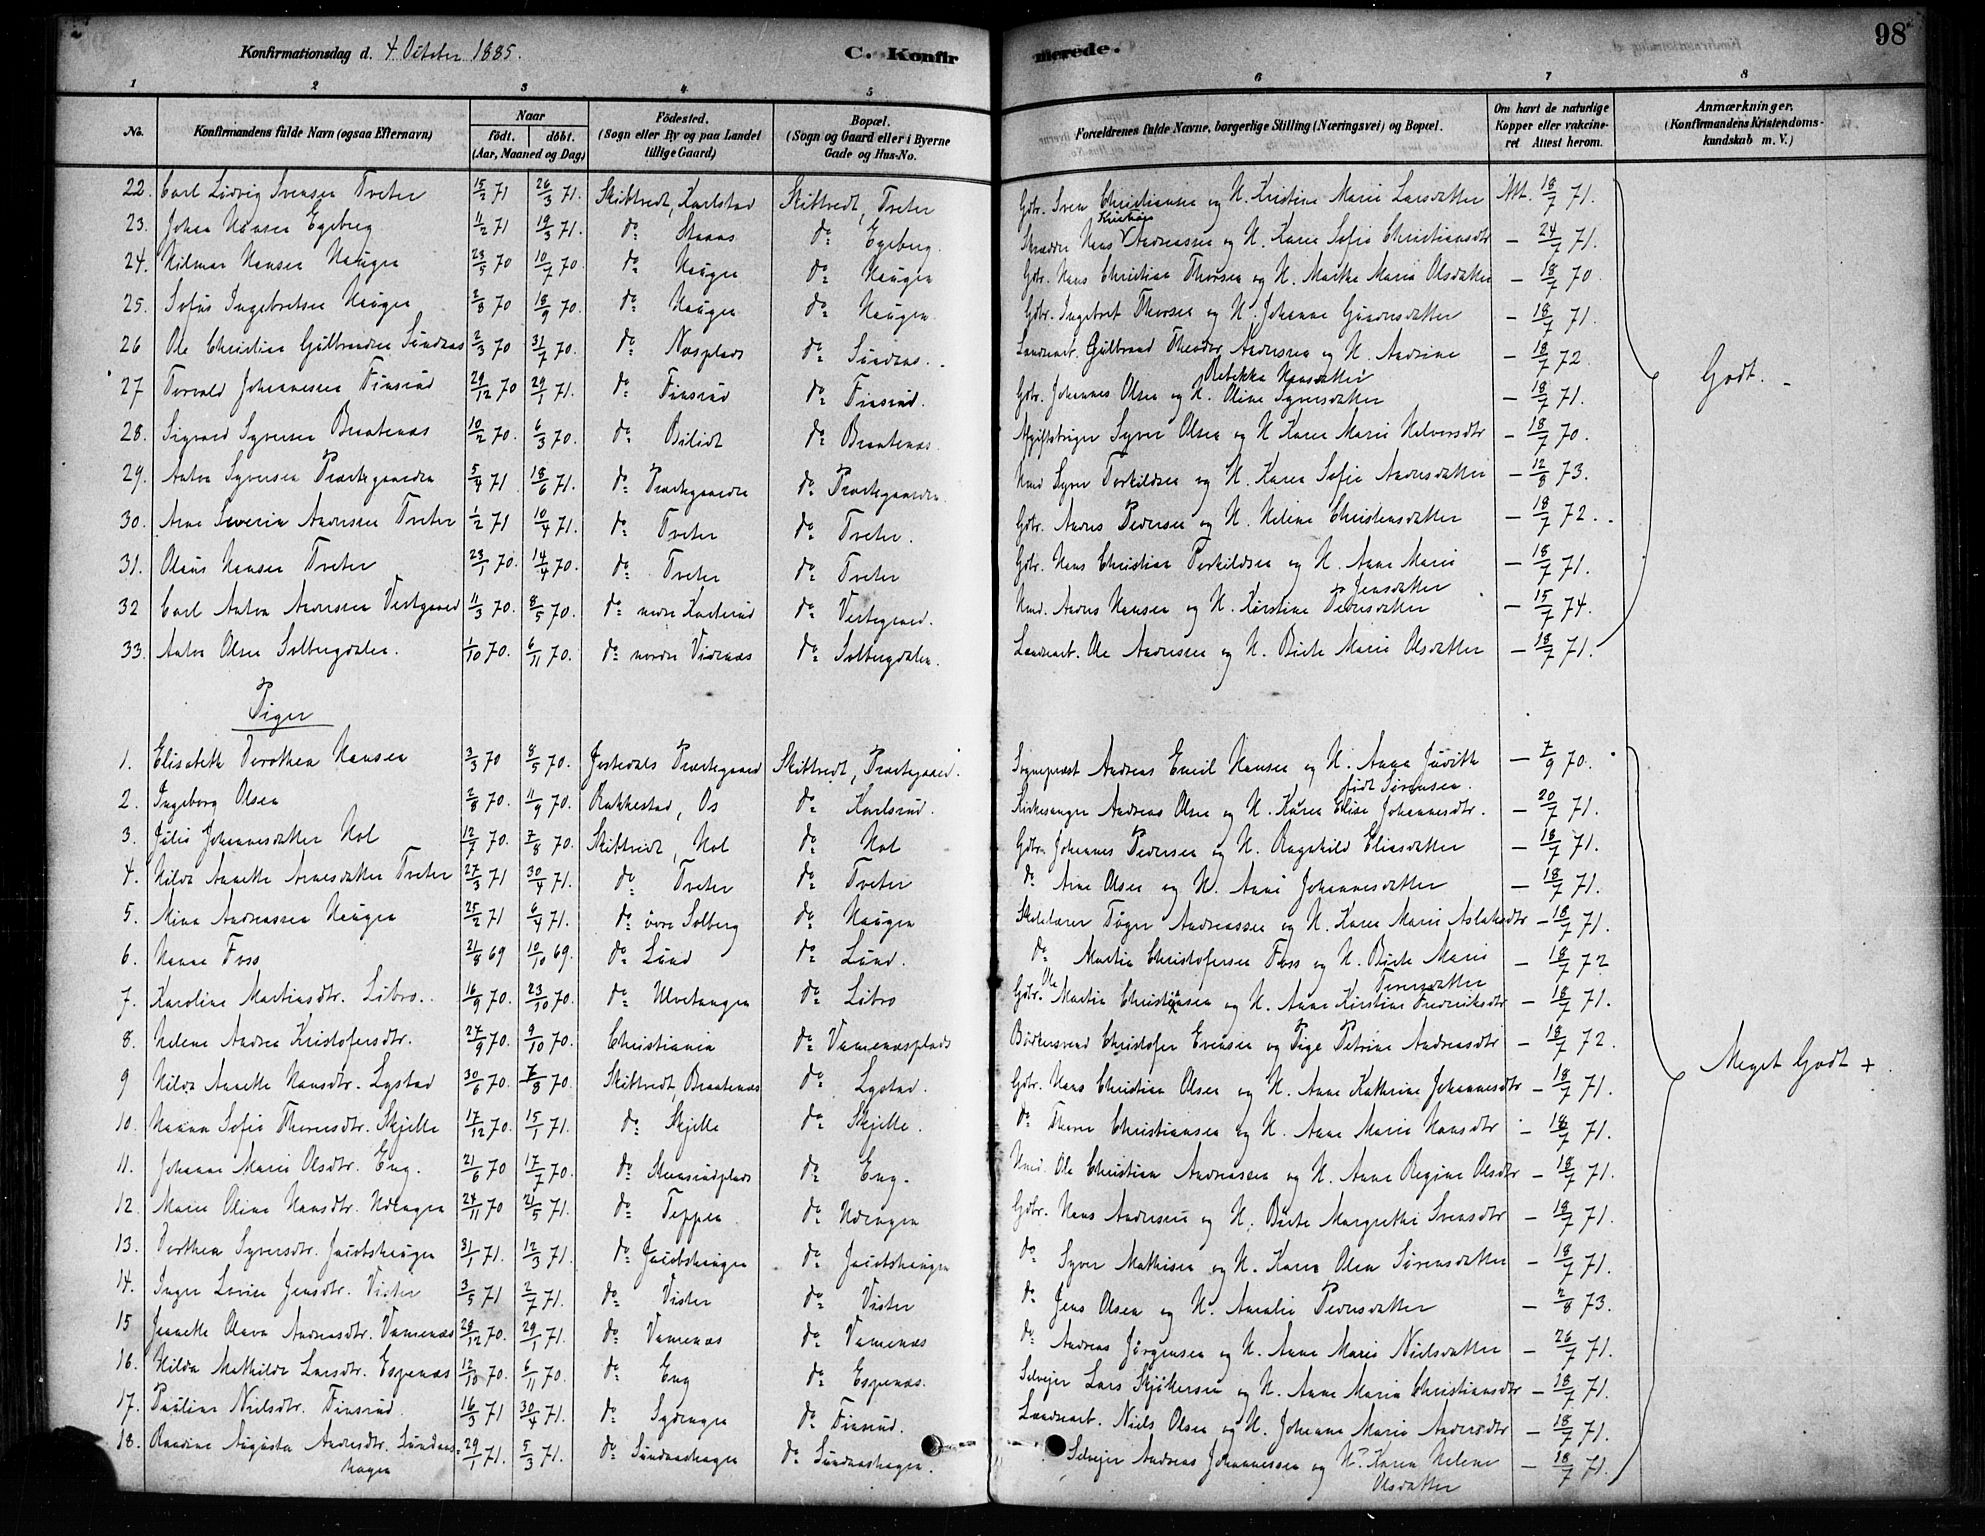 Konfirmationsdag d. 4 October 1885. C. Konfirmerede. 98
1 2 3 4 5 6 7 8
No. Konfirmandens fulde Navn (ogsaa Efternavn) Naar födt. döbt. (Aar, Maaned og Dag) Födested. (Sogn eller By og paa Landet tillige Gaard) Bopæl. (Sogn og Gaard eller i Byerne Gade og Hus-No. Forældrenes fulde Navne, borgerlige Stilling (Næringsvei) og Bopæl. Om havt de naturlige Kopper eller vakcineret. Attest herom. Anmærkninger. (Konfirmandens Kristendomskundskab m. V.)
22. Carl Ludvig Svensen Tveter 15/2 71 26/3 71. Skiptvedt, Karlstad Skiptvedt, Tveter Gbr. Sven Christiansen og H. Kristine Marie Larsdatter Att. 18/7 71.
23. Johan Hansen Egeberg 11/2 71 19/3 71. do Egeberg. Skrædder Hans Kristian Andreassen og H. Karen Sofie Christiansdtr — 24/7 71.
24. Hilmar Hansen Haugen 23/5 70 10/7 70. do Haugen do Haugen Gbr. Hans Christian Thorsen og H. Marthe Maria Olsdatter — 18/7 70
25. Sofus Ingebretsen Haugen 2/8 70 18/9 70. do Haugen do Haugen Gbr. Ingebret Thorsen og H. Johanne Gundersdatter — 18/7 71.
26 Ole Christian Gulbrandsen Sundnæs 2/3 70 31/7 70. do Næsplads do Sundnæs. Landarb. Gulbrand Theodor Andersen og H. Andrine Rebekka Hansdatter — 18/7 72
27 Torvald Johannessen Finsrud 29/12 70 29/1 71. do Finsrud do Finsrud. Gbr. Johannes Olsen og H. Oline Syversdatter — 18/7 71.
Godt.
28. Sigvard Syversen Braatenæs 10/2 70. 6/3 70. do do Braatenæs. Syver Olsen og H. Karen Marie Halvorsdtr — 18/7 70.
29. Anton Syversen Præstegaarden 5/4 71 18/6 71. do Præstegaarden do Præstegaarden Hmd Syver Torkildsen og H. Karen Sofie Andersdatter — 12/8 73.
30. Arne Severin Andersen Tveter 1/2 71 10/4 71. do Tveter do Tveter. Gbr. Anders Pedersen og H. Helene Christensdatter — 18/7 72.
31. Olaus Hansen Tveter 23/1 70. 14/4 70. do Tveter do Tveter Gbr. Hans Christian Torkildsen og H. Anne Marie Jensdatter — 18/7 71.
32 Carl Anton Andersen Vestgaard 11/3 70. 8/5 70. do nedre do Vestgaard. Hmd. Anders Hansen og H. Kirstine Pedersdatter — 15/7 74.
33. Anton Olsen Solbergdalen. 1/10 70. 6/11 70. do nordre Vidnæs do Solbergdalen. Landarb. Ole Andersen og H. Birte Marie Olsdatter — 18/7 71.
Piger
1. Elisabeth Dorothea Hansen 3/3 70 8/5 70. Jostedals Præstegaard Skiptvedt, Præstegaard. Sognepræst Andreas Emil Hansen og H. Anna Judith født Sørensen. — 7/9 70.
2. Ingeborg Olsen 2/8 70. 11/9 70. Rakkestad, Os do Karlsrud. Kirkesanger Andreas Olsen og H. Karen Elise Johannesdtr. — 20/7 71.
3. Julie Johannesdatter Hol 12/7 70. 7/8 70. Skiptvedt, Hol do Hol Gbr. Johannes Pedersen og H. Ragnhild Eliasdatter — 18/7 71.
4. Hilda Annette Arnesdatter Tveter 27/3 71 30/4 71. do Tveter do Tveter do Arne Olsen og H. Anne Johannesdatter — 18/7 71.
5. Mina Andreassen Haugen 25/2 71 6/4 71. do øvre Solberg do Haugen Skolelærer Andreassen og H. Karen Marie Aslaksdtr — 18/7 71.
6. Hanna Foss 21/8 69 10/10 69. do Lund do Lund. do Martin Christofersen Foss og H. Birte Marie Iversdatter — 18/7 72
7. Karoline Martinsdtr. Libro. 16/9 70. 23/10 70. do Ulvetangen do Libro Gbr. Ole Martin Christiansen og H. Anne Kirstine Fredriksdtr — 18/7 71.
8. Helene Andrea Kristofersdtr. 27/9 70. 9/10 70. Christiania do Vamenæsplads Bødkersvend Christofer Evensen og Pige Petrine Andreasdtr — 18/7 72.
Meget Godt +
9 Hilda Annette Hansdtr. Lystad 30/6 70. 7/8 70. Skiptvedt, Braatenæs do Lystad. Gbr. Hans Christian Olsen og H. Anne Kathrine Johannesdtr — 18/7 71.
10. Hanna Sofie Thoresdtr. Skjelle 17/12 70. 15/1 71. do Skjelle do Skjelle. do Thore Christiansen og H. Anne Marie Hansdtr — 18/7 71.
11. Johanne Marie Olsdtr. Eng. 21/6 70 17/7 70. do Stensrudplads do Eng. Hmd. Ole Christian Andreassen og H. Anne Regine Olsdtr — 18/7 71.
12. Maren Oline Hansdtr. Udengen 24/11 70 21/5 71. do Teppen do Udengen Gbr. Hans Andersen og H. Birte Margrethe Svensdtr — 18/7 71.
13. Dorthea Syversdtr. Jacobshaugen 31/1 71. 12/3 71. do Jacobshaugen do Jacobshaugen do Syver Mathisen og H. Karen Olea Sørensdatter — 18/7 71.
14. Inger Lovise Jensdtr. Vister 3/5 71 2/7 71. do Vister do Vister do Jens Olsen og H. Amalie Pedersdatter — 2/8 73.
15 Jeanette Olava Andreasdtr. Vamenæs 28/12 70. 29/1 71. do Vamenæs do Vamenæs do Andreas Jörgensen og H. Anne Marie Nielsdatter — 26/7 71.
16. Hilda Mathilde Larsdtr. Espenæs 12/10 70. 6/11 70. do Eng do Espenæs. Selveier Lars og H. Anne Maria Christiansdtr — 18/7 71.
17. Pauline Nielsdtr. Finsrud. 16/3 71 30/4 71. do Sydengen do Finsrud. Landarb. Niels Olsen og H. Johanne Marie Andersdtr — 18/7 71.
18. Augusta Andreasdtr. Sundnæshagen 29/1 71. 5/3 71. do Sundnæshagen do Sundnæshagen. Selveier Andreas Johannessen og H. Karen Helene Olsdatter — 18/7 71.